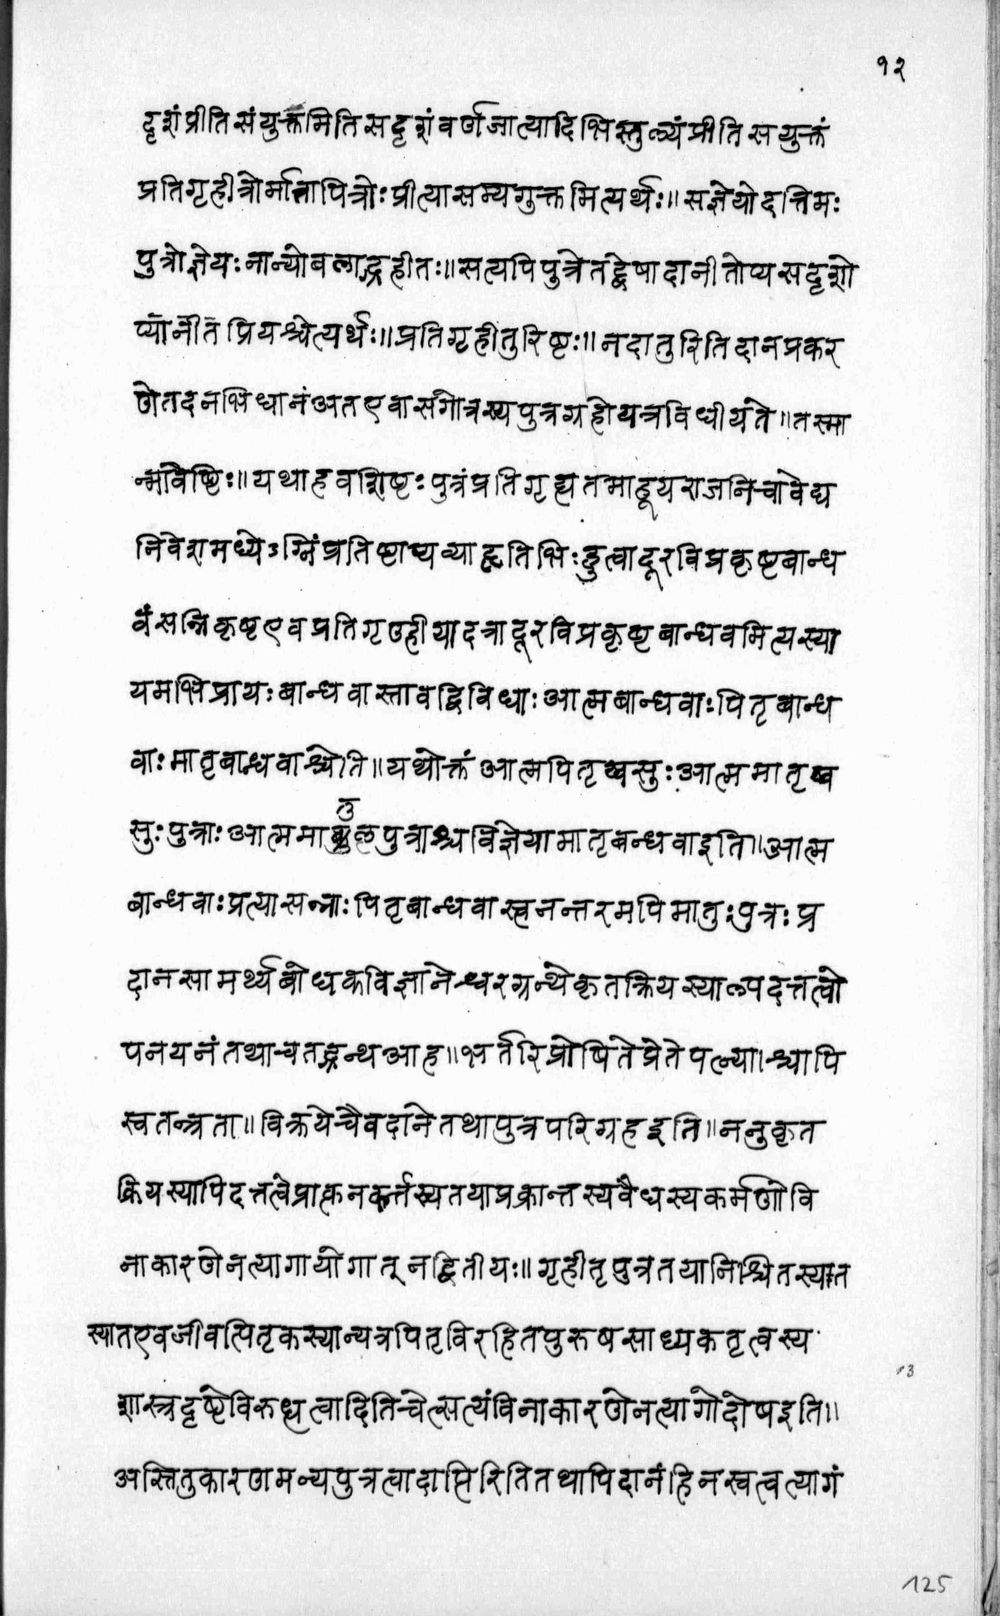 १२
दृशंप्रीतिसंयुक्तमितिसदृशंवर्णजात्यादिभिस्तुल्यंप्रीतिसयुक्तं
प्रतिगृहीत्रोर्मातापित्रोःप्रीत्यासम्यगुक्तमित्यर्थः॥सज्ञेयोदत्तिमः
पुत्रोज्ञेयःनान्योबलाद्गृहीतः॥सत्यपिपुत्रेतद्द्वेषादानीतोप्यसदृशो
प्यानीतप्रियश्चेत्यर्थः॥प्रतिगृहीतुरिष्टः॥नदातुरितिदानप्रकर
णेतदनभिधानंअतएवासगोत्रस्यपुत्रग्रहोयत्रविधीयते॥तस्मा
यथाहवशिष्टःपुत्रंप्रतिगृह्यतमाहूयराजनिचावेद्य
निवेशमध्येऽग्निंप्रतिष्टाप्यव्याहृतिभिःहुत्वादूरविप्रकृष्टबान्ध
वंसन्निकृष्टएवप्रतिगृण्हीयादत्रादूरविप्रकृष्टबान्धवमित्यस्या
यमभिप्रायःबान्धवास्तावद्विविधाःआत्मबान्धवाःपितृबान्ध
वाःमातृबान्धवाश्चेति॥यथोक्तंआत्मपितृष्वसुःआत्ममातृष्व
सुःपुत्राःआत्ममातुलपुत्राश्चविज्ञेयामातृबन्धवाइति॥आत्म
बान्धवाःप्रत्यासन्नाःपितृबान्धवास्त्वनन्तरमपिमातुःपुत्रःप्र
दानसामर्थ्यबोधकविज्ञानेश्वरग्रन्थेकृतक्रियस्याल्पदत्तत्वो
पनयनंतथाचतद्ग्रन्थआह॥भर्तरिप्रोषितेप्रेतेपत्न्याश्चापि
स्वतन्त्रता॥विक्रयेचैवदानेतथापुत्रपरिग्रहइति॥ननुकृत
क्रियस्यापिदत्तत्वेप्राक्तनकर्त्तस्यतयाप्रक्रान्तस्यवैधस्यकर्मणोवि
नाकारणेनत्यागायोगात्नद्वितीयः॥गृहीतृपुत्रतयानिश्चितस्यात
स्यातएवजीवत्पितृकस्यान्यत्रपितृविरहितपुरुषसाध्यकतृत्वस्य
शास्त्रदृष्टेविरुध्दत्वादितिचेत्सत्यंविनाकारणेनत्यागोदोषइति॥
अस्तितुकारणमन्यपुत्रत्वादाप्तिरितितथापिदानंहिनस्वत्वत्यागं
125